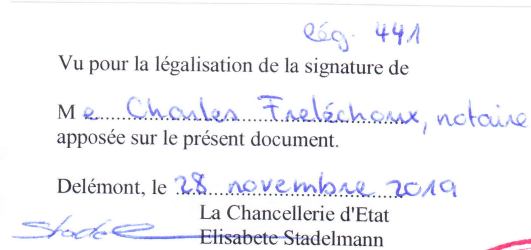 Rég. 441
Vu pour la légalisation de la signature de
Me Charles Freléchoux, notaire
apposée sur le présent document.
Delémont, le 28 novembre 2019
La Chancellerie d'Etat
Stadel
Elisabete Stadelmann